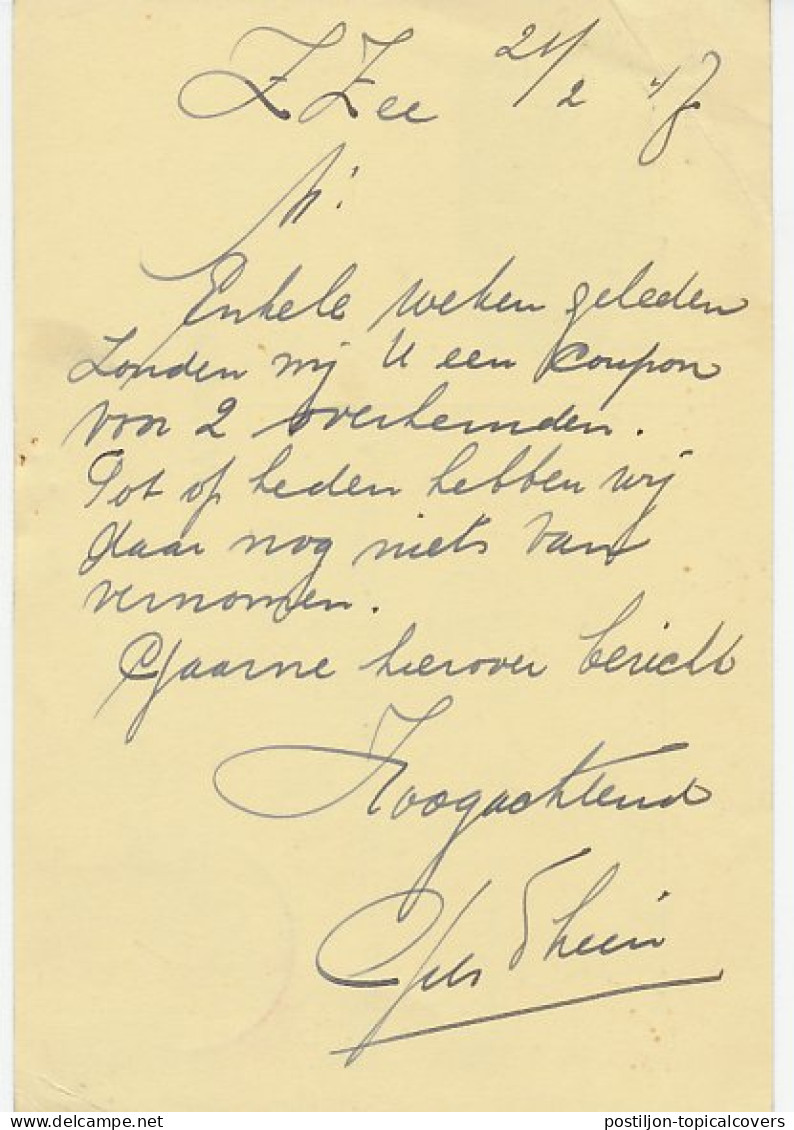 Z Zee 21/2 '47
M'.
Enkele weken geleden
zonden wij U een coupon
voor 2 overhemden.
Tot op heden hebben wij
daar nog niets van
vernomen.
Gaarne hierover bericht
Hoogachtend
postiljon-topicalcovers